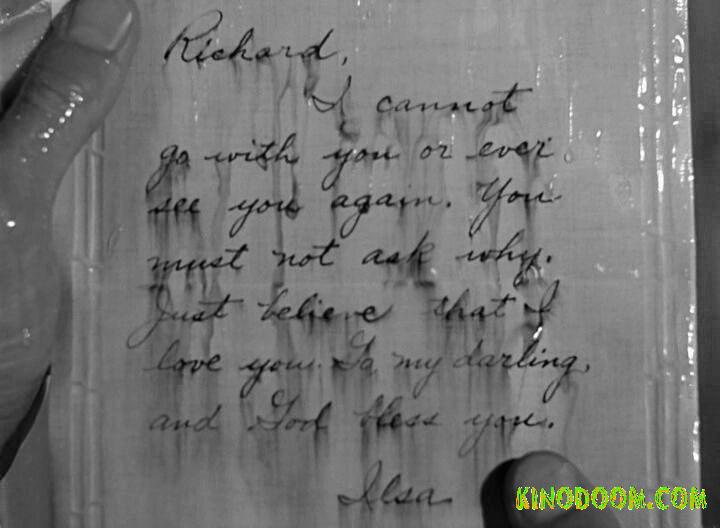 Richard,
I cannot
go with you or ever
see you again. You
must not ask why.
Just believe that I
love you. Go, my darling,
and God bless you.
Ilsa
KINODOOM.COM